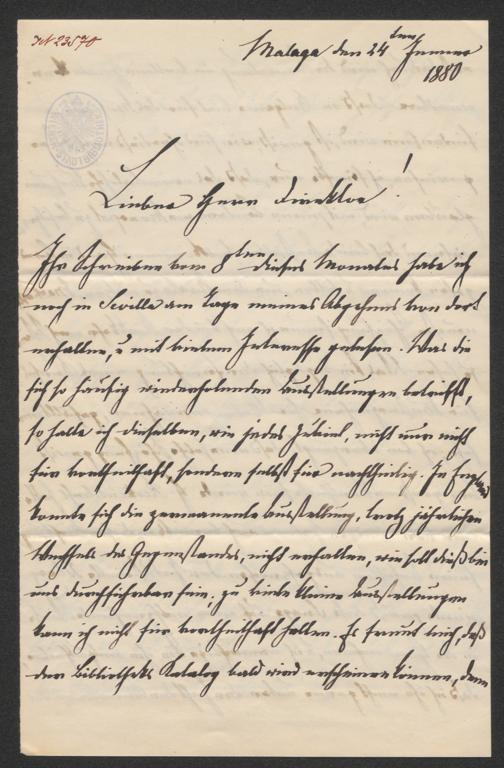 IN 23570
Malaga den 24ten Jänner
1880
Lieber Herr Direktor!
Ihr Schreiben vom 8ten dieses Monates habe ich
noch in Sevilla am Tage meines Abgehens von dort
erhalten, u mit vielem Interesse gelesen. Was die
sich so häufig wiederholenden Ausstellungen betrifft,
so halte ich dieselben, wie jedes Zuviel, nicht nur nicht
für vortheilhaft, sondern selbst für nachtheilig. In England
konnte sich die permanente Ausstellung, trotz jährlichen
Wechsels des Gegenstandes, nicht erhalten, wie soll dieß bei
uns durchführbar sein; zu viele kleine Ausstellungen
kann ich nicht für vortheilhaft halten. Es freut mich, daß
der Bibliotheks Katalog bald wird erscheinen können, denn